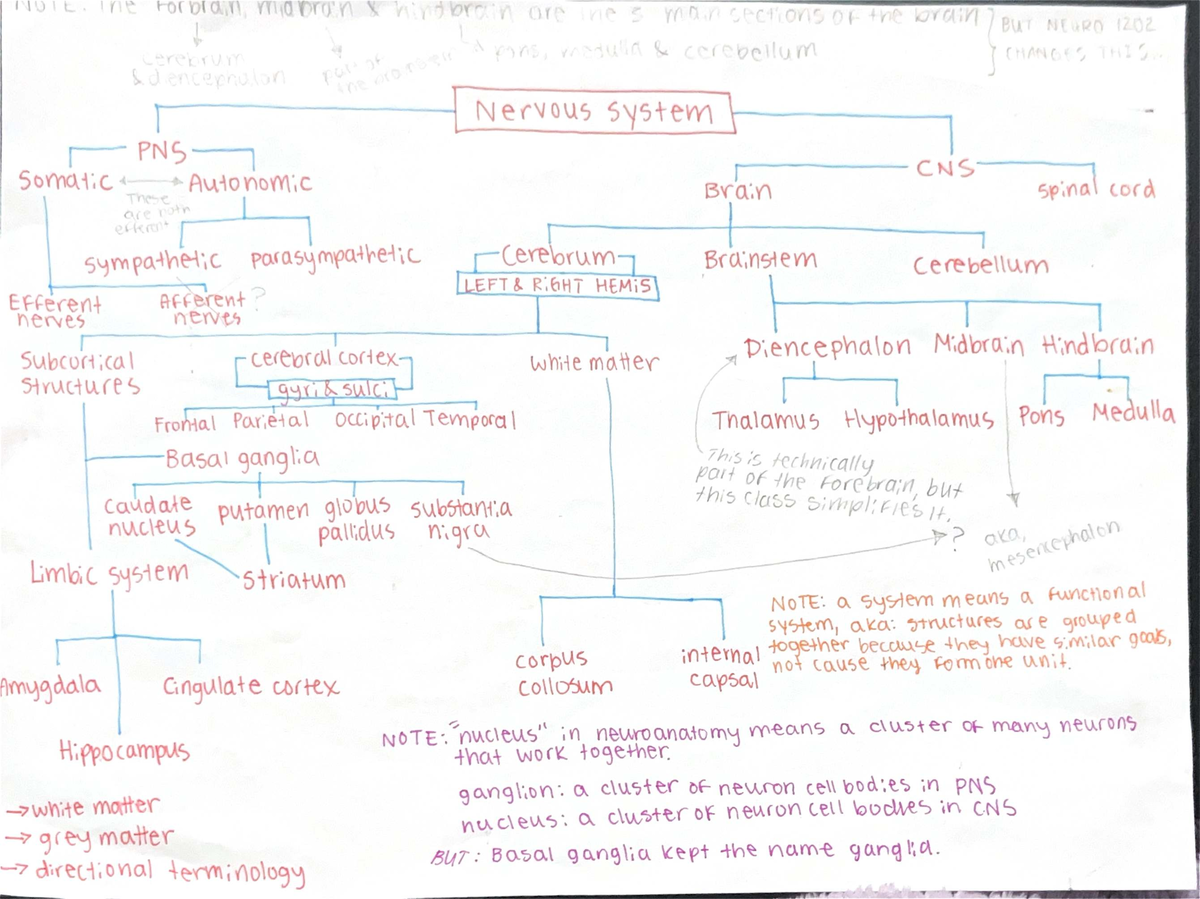 NOTE: The Forbrain, midbrain & hindbrain are the 3 main sections of the brain
BUT NEURO 1202
CHANGES THIS...
cerebrum
& diencephalon
part of
the brainstem
pons, medulla & cerebellum
Nervous system
PNS
CNS
Somatic
Autonomic
These
are both
efferent
Brain
spinal cord
sympathetic
parasympathetic
Cerebrum
LEFT & RIGHT HEMIS
Brainstem
Cerebellum
Efferent
nerves
Afferent ?
nerves
Subcortical
structures
cerebral cortex
gyri & sulci
white matter
Diencephalon
Midbrain
Hindbrain
Frontal
Parietal
Occipital
Temporal
Thalamus
Hypothalamus
Pons
Medulla
Basal ganglia
This is technically
part of the forebrain, but
this class simplifies it.
caudate
nucleus
putamen
globus
pallidus
substantia
nigra
?
aka,
mesencephalon
Limbic system
Striatum
NOTE: a system means a functional
system, aka: structures are grouped
together because they have similar goals,
not cause they form one unit.
corpus
collosum
internal
capsal
Amygdala
Cingulate cortex
Hippocampus
NOTE: "nucleus" in neuroanatomy means a cluster of many neurons
that work together.
ganglion: a cluster of neuron cell bodies in PNS
nucleus: a cluster of neuron cell bodies in CNS
BUT: Basal ganglia kept the name ganglia.
→ white matter
→ grey matter
→ directional terminology